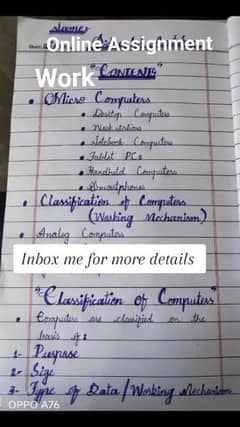 Name:
Online Assignment
Work
"Contents"
• Micro Computers
• Desktop Computers
• Work stations
• Notebook Computers
• Tablet PCs
• Handheld Computers
• Smartphones
• Classification of Computers
(Working Mechanism)
• Analog Computers
Inbox me for more details
"Classification of Computers"
• Computers are classified on the
basis of:
1- Purpose
2- Size
3- Type of Data/Working Mechanism
OPPO A76